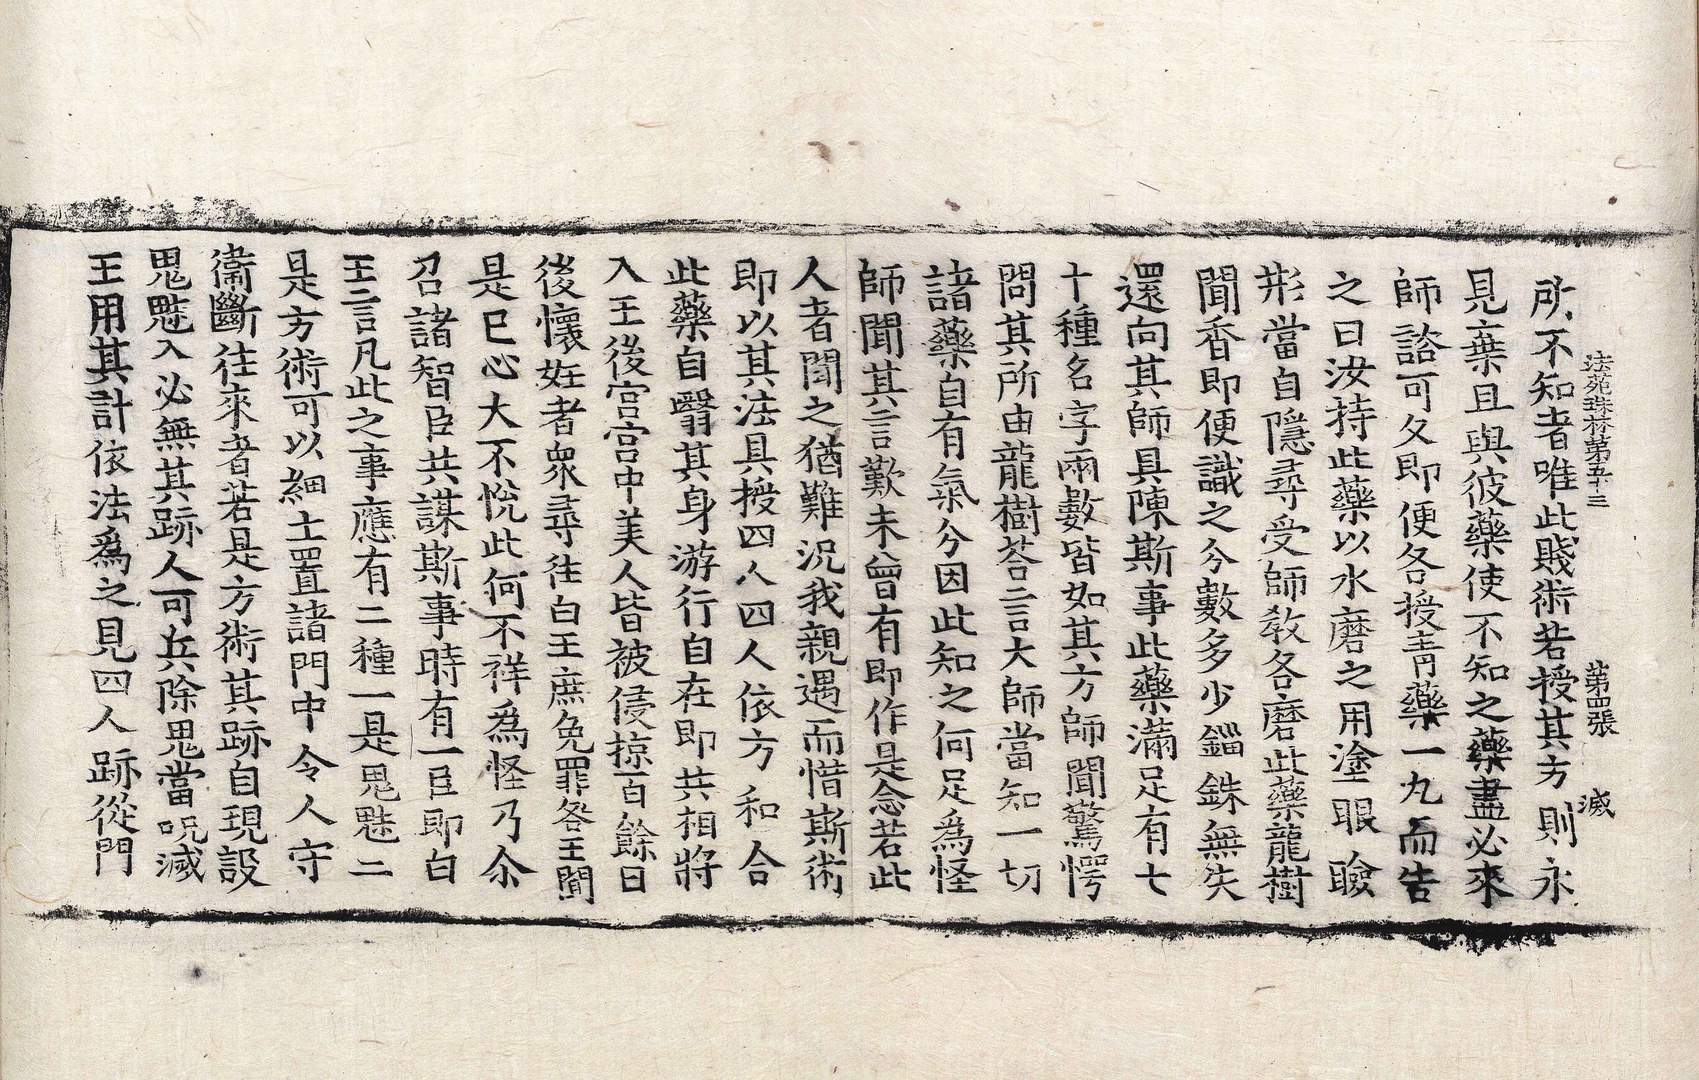 法苑珠林第五十三　第四張　滅
所不知者唯此賤術若授其方則永
見棄且與彼藥使不知之藥盡必來
師諮可久即便各授青藥一丸而告
之曰汝持此藥以水磨之用塗眼瞼
形當自隱尋受師教各磨此藥龍樹
聞香即便識之分數多少錙銖無失
還向其師具陳斯事此藥滿足有七
十種名字兩數皆如其方師聞驚愕
問其所由龍樹荅言大師當知一切
諸藥自有氣分因此知之何足為怪
師聞其言歎未曾有即作是念若此
人者聞之猶難況我親遇而惜斯術
即以其法具授四人四人依方和合
此藥自翳其身游行自在即共相將
入王後宮宮中美人皆被侵掠百餘日
後懷妊者衆尋往白王庶免罪咎王聞
是已心大不悅此何不祥為怪乃尒
召諸智臣共謀斯事時有一臣即白
王言凡此之事應有二種一是鬼魅二
是方術可以細土置諸門中令人守
衞斷往來者若是方術其跡自現設
鬼魅入必無其跡人可兵除鬼當呪滅
王用其計依法為之見四人跡從門